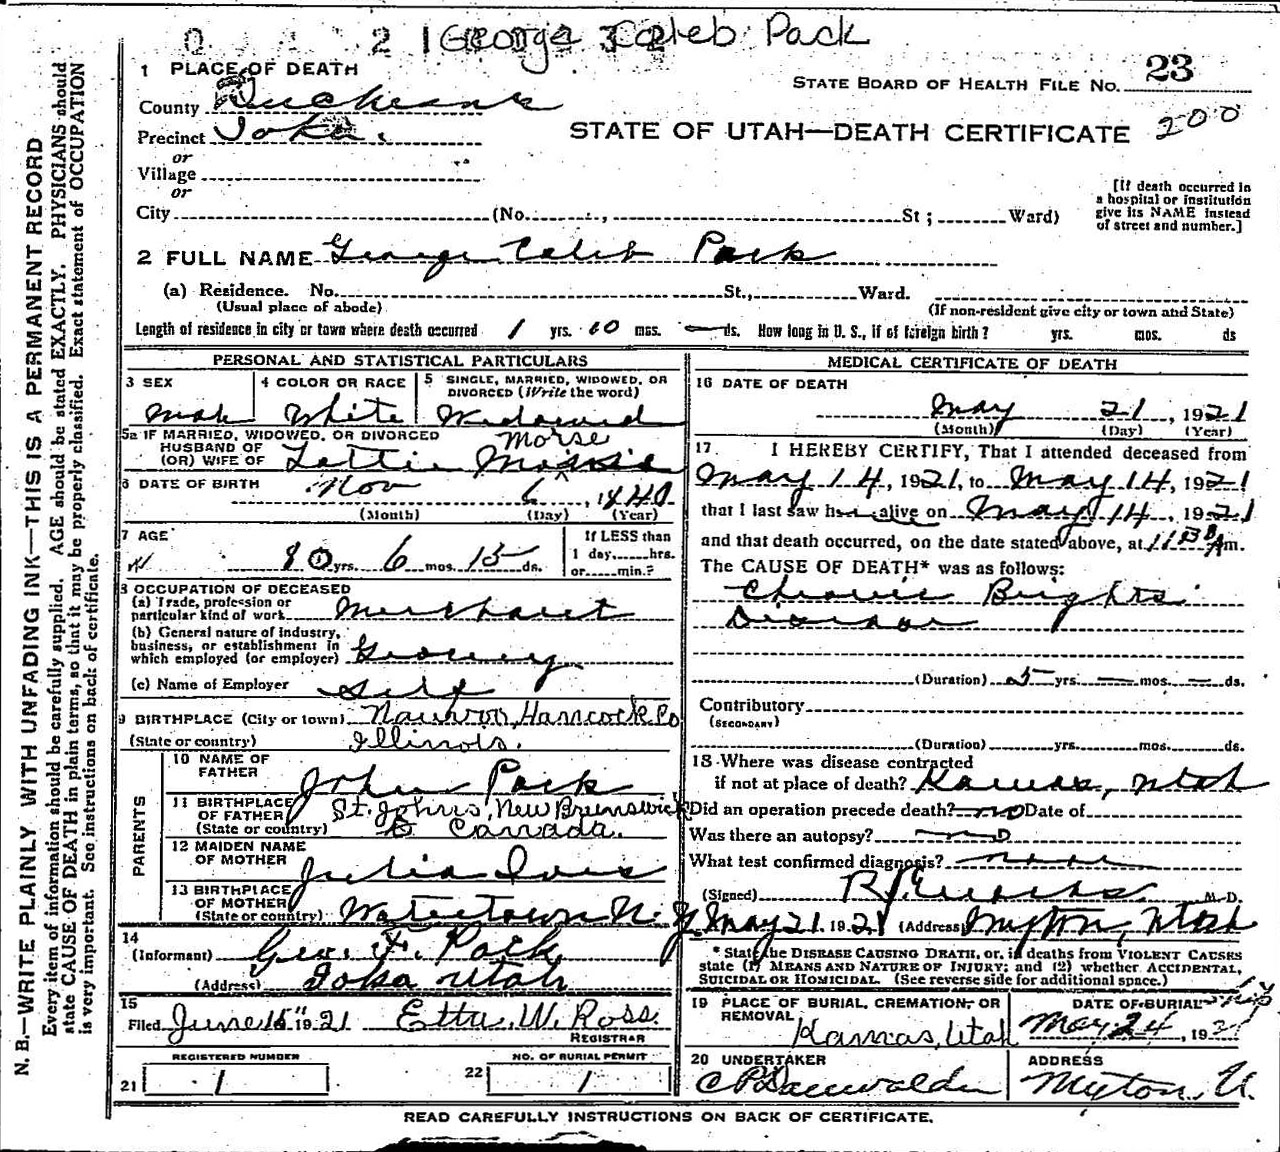 George Caleb Pack
1 PLACE OF DEATH
STATE BOARD OF HEALTH FILE NO. 23
County Duchesne
200
Precinct Ioka.
STATE OF UTAH—DEATH CERTIFICATE
or
Village
or
City (No. , St; Ward)
[If death occurred in
a hospital or institution
give its NAME instead
of street and number.]
2 FULL NAME George Caleb Pack
(a) Residence. No. St., Ward.
(Usual place of abode)
(If non-resident give city or town and State)
Length of residence in city or town where death occurred 1 yrs. 10 mos. — ds. How long in U. S., if of foreign birth? yrs. mos. ds
PERSONAL AND STATISTICAL PARTICULARS
3 SEX
Male
4 COLOR OR RACE
White
5 SINGLE, MARRIED, WIDOWED, OR
DIVORCED (Write the word)
Widowed
5a IF MARRIED, WIDOWED, OR DIVORCED
HUSBAND OF
(OR) WIFE OF Lottie
Morse
6 DATE OF BIRTH
Nov 6, 1840
(Month) (Day) (Year)
7 AGE
80 yrs. 6 mos. 15 ds.
If LESS than
1 day, hrs.
or min.?
8 OCCUPATION OF DECEASED
(a) Trade, profession or
particular kind of work Merchant
(b) General nature of industry,
business, or establishment in
which employed (or employer) Grocery
(c) Name of Employer Self
9 BIRTHPLACE (City or town) Nauvoo, Hancock Co
(State or country) Illinois.
PARENTS
10 NAME OF
FATHER John Pack
11 BIRTHPLACE
OF FATHER St. Johns, New Brunswick
(State or country) Canada.
12 MAIDEN NAME
OF MOTHER Julia Ives
13 BIRTHPLACE
OF MOTHER
(State or country) Watertown N. Y.
14
(Informant) Geo. F. Pack
(Address) Ioka Utah
15
Filed June 15" 1921 Etta W. Ross.
REGISTRAR
REGISTERED NUMBER
21 1
NO. OF BURIAL PERMIT
22 1
MEDICAL CERTIFICATE OF DEATH
16 DATE OF DEATH
May 21, 1921
(Month) (Day) (Year)
17 I HEREBY CERTIFY, That I attended deceased from
May 14, 1921, to May 14, 1921
that I last saw him alive on May 14, 1921
and that death occurred, on the date stated above, at 11 30 Am.
The CAUSE OF DEATH* was as follows:
Chronic Brights
Disease
(Duration) 5 yrs. — mos. — ds.
Contributory
(SECONDARY)
(Duration) yrs. mos. ds.
18 Where was disease contracted
if not at place of death? Kamas, Utah
Did an operation precede death? no Date of
Was there an autopsy? no
What test confirmed diagnosis?
(Signed) M. D.
May 21 1921 (Address) Myton, Utah
* State the DISEASE CAUSING DEATH, or, in deaths from VIOLENT CAUSES
state (1) MEANS AND NATURE OF INJURY; and (2) whether ACCIDENTAL,
SUICIDAL OR HOMICIDAL. (See reverse side for additional space.)
19 PLACE OF BURIAL, CREMATION, OR
REMOVAL
Kamas, Utah
DATE OF BURIAL
Ship
May 24, 1921
20 UNDERTAKER
ADDRESS
Myton, U.
READ CAREFULLY INSTRUCTIONS ON BACK OF CERTIFICATE.
N. B.—WRITE PLAINLY WITH UNFADING INK—THIS IS A PERMANENT RECORD
Every item of information should be carefully supplied. AGE should be stated EXACTLY. PHYSICIANS should
state CAUSE OF DEATH in plain terms, so that it may be properly classified. Exact statement of OCCUPATION
is very important. See instructions on back of certificate.